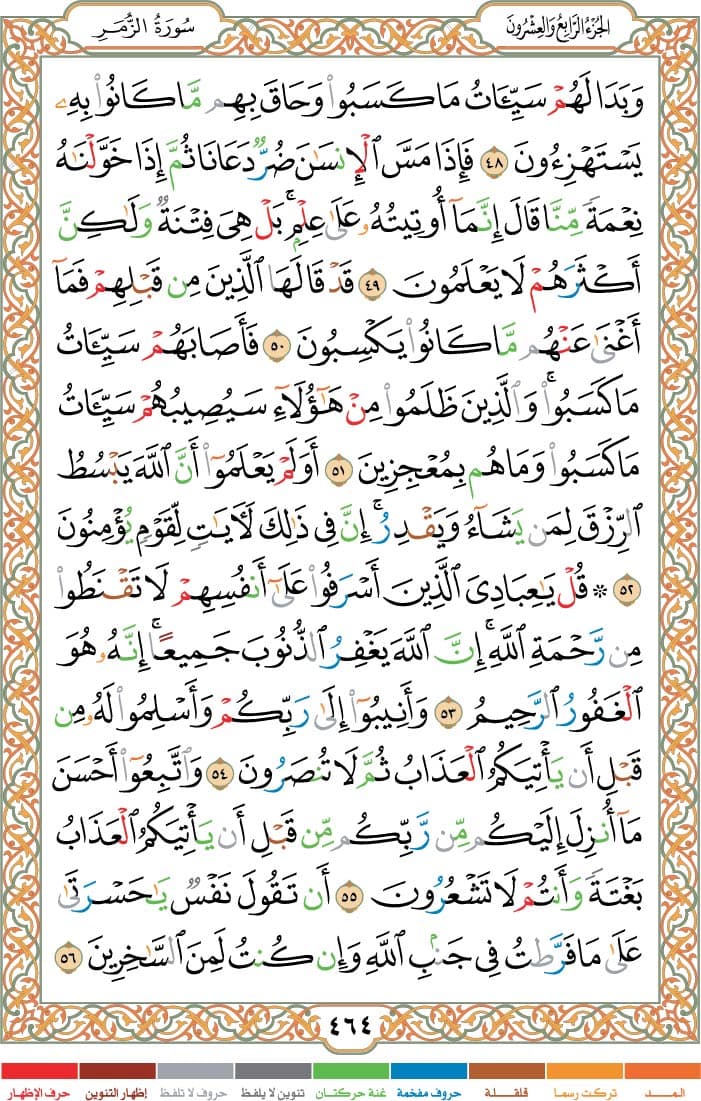 الجزء الرابع والعشرون
سورة الزمر
وَبَدَا لَهُمْ سَيِّـَٔاتُ مَا كَسَبُوا۟ وَحَاقَ بِهِم مَّا كَانُوا۟ بِهِۦ
يَسْتَهْزِءُونَ ٤٨ فَإِذَا مَسَّ ٱلْإِنسَـٰنَ ضُرٌّ دَعَانَا ثُمَّ إِذَا خَوَّلْنَـٰهُ
نِعْمَةً مِّنَّا قَالَ إِنَّمَآ أُوتِيتُهُۥ عَلَىٰ عِلْمٍۭ ۚ بَلْ هِىَ فِتْنَةٌ وَلَـٰكِنَّ
أَكْثَرَهُمْ لَا يَعْلَمُونَ ٤٩ قَدْ قَالَهَا ٱلَّذِينَ مِن قَبْلِهِمْ فَمَآ
أَغْنَىٰ عَنْهُم مَّا كَانُوا۟ يَكْسِبُونَ ٥٠ فَأَصَابَهُمْ سَيِّـَٔاتُ
مَا كَسَبُوا۟ ۚ وَٱلَّذِينَ ظَلَمُوا۟ مِنْ هَـٰٓؤُلَآءِ سَيُصِيبُهُمْ سَيِّـَٔاتُ
مَا كَسَبُوا۟ وَمَا هُم بِمُعْجِزِينَ ٥١ أَوَلَمْ يَعْلَمُوٓا۟ أَنَّ ٱللَّهَ يَبْسُطُ
ٱلرِّزْقَ لِمَن يَشَآءُ وَيَقْدِرُ ۚ إِنَّ فِى ذَٰلِكَ لَـَٔايَـٰتٍ لِّقَوْمٍ يُؤْمِنُونَ
٥٢ ۞ قُلْ يَـٰعِبَادِىَ ٱلَّذِينَ أَسْرَفُوا۟ عَلَىٰٓ أَنفُسِهِمْ لَا تَقْنَطُوا۟
مِن رَّحْمَةِ ٱللَّهِ ۚ إِنَّ ٱللَّهَ يَغْفِرُ ٱلذُّنُوبَ جَمِيعًا ۚ إِنَّهُۥ هُوَ
ٱلْغَفُورُ ٱلرَّحِيمُ ٥٣ وَأَنِيبُوٓا۟ إِلَىٰ رَبِّكُمْ وَأَسْلِمُوا۟ لَهُۥ مِن
قَبْلِ أَن يَأْتِيَكُمُ ٱلْعَذَابُ ثُمَّ لَا تُنصَرُونَ ٥٤ وَٱتَّبِعُوٓا۟ أَحْسَنَ
مَآ أُنزِلَ إِلَيْكُم مِّن رَّبِّكُم مِّن قَبْلِ أَن يَأْتِيَكُمُ ٱلْعَذَابُ
بَغْتَةً وَأَنتُمْ لَا تَشْعُرُونَ ٥٥ أَن تَقُولَ نَفْسٌ يَـٰحَسْرَتَىٰ
عَلَىٰ مَا فَرَّطتُ فِى جَنۢبِ ٱللَّهِ وَإِن كُنتُ لَمِنَ ٱلسَّـٰخِرِينَ ٥٦
٤٦٤
المــد
تركت رسما
قلقلة
حروف مفخمة
غنة حركتان
تنوين لا يلفظ
حروف لا تلفظ
إظهار التنوين
حرف الإظهار